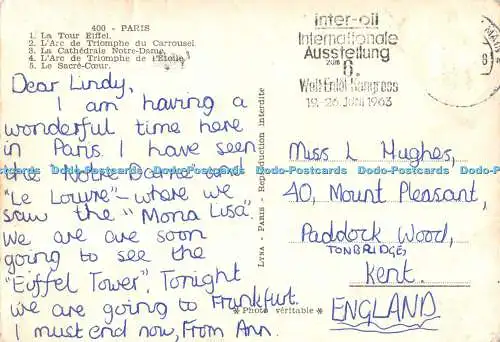 400 - PARIS
1. La Tour Eiffel.
2. L'Arc de Triomphe du Carrousel.
3. La Cathédrale Notre-Dame.
4. L'Arc de Triomphe de l'Étoile.
5. Le Sacré-Cœur.
Dear Lindy,
I am having a
wonderful time here
in Paris. I have seen
the "Notre Dame" and
"Le Louvre" - where we
saw the "Mona Lisa".
We are are soon
going to see the
"Eiffel Tower". Tonight
we are going to Frankfurt.
I must end now, From Ann.
Lyna - Paris - Reproduction interdite
* Photo véritable *
inter-oil
Internationale
Ausstellung
zum
6.
Welt Erdöl Kongress
19.-26. JUNI 1963
Miss L Hughes,
40, Mount Pleasant,
Paddock Wood,
TONBRIDGE,
Kent.
ENGLAND
Dodo-Postcards Dodo-Postcards Dodo-Postcards Dodo-Postcards Dodo-Postcards Dodo-Postcards